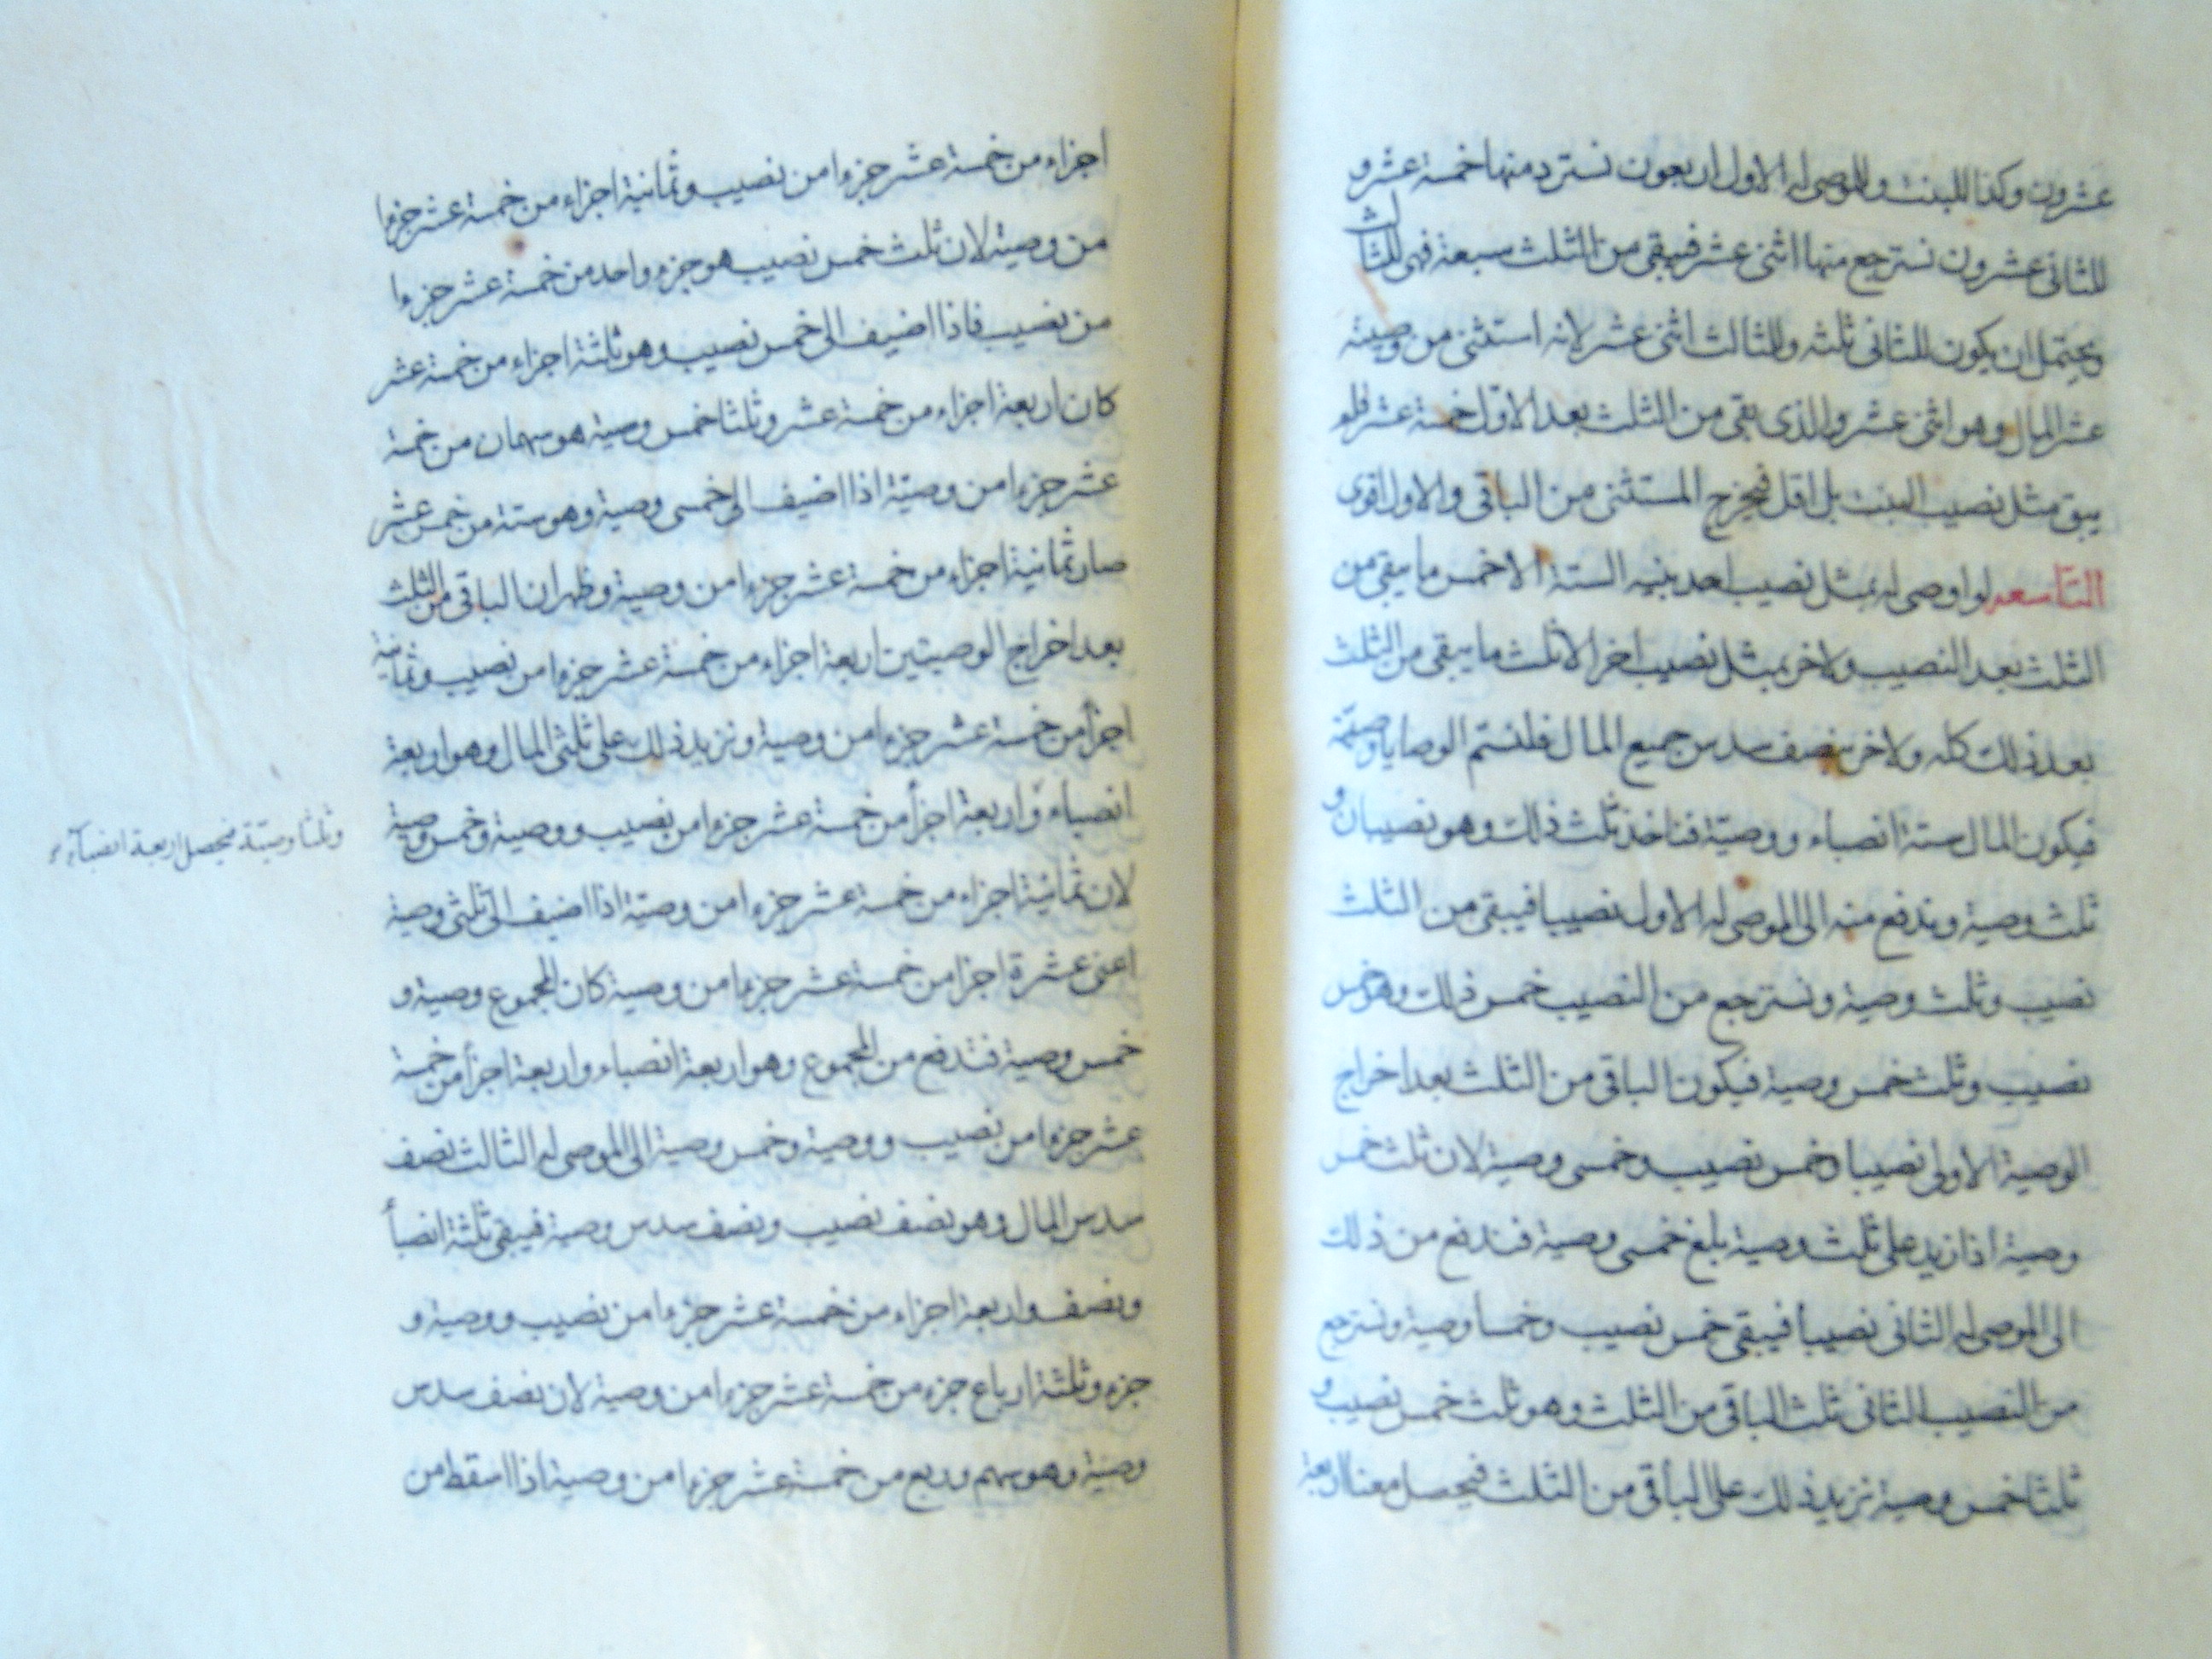 عشرون وكذا للبنت وللموصى له الاول اربعون نسترد منها خمسة عشر و
للثانى عشرون نسترجع منها اثنى عشر فيبقى من الثلث سبعة فهى للثالث
ويحتمل ان يكون للثانى ثلثه وللثالث اثنى عشر لانه استثنى من وصيته
عشر المال وهو اثنى عشر والذى بقى من الثلث بعد الاول خمسة عشر فلم
يبق مثل نصيب البنت بل اقل فيخرج المستثنى من الباقى والاول اقوى
التاسعه لو اوصى له بمثل نصيب احد بنيه الستة الا خمس ما يبقى من
الثلث بعد النصيب ولاخر بمثل نصيب اخر الا ثلث ما يبقى من الثلث
بعد ذلك كله ولاخر بنصف سدس جميع المال فلنسم الوصايا وصيّة
فيكون المال ستة انصباء ووصيّة فناخذ ثلث ذلك وهو نصيبان و
ثلث وصية وندفع منه الى الموصى له الاول نصيبا فيبقى من الثلث
نصيب وثلث وصية ونسترجع من النصيب خمس ذلك وهو خمس
نصيب وثلث خمس وصية فيكون الباقى من الثلث بعد اخراج
الوصية الاولى نصيبا وخمس نصيب وخمسى وصية لان ثلث خمس
وصية اذا زيد على ثلث وصية بلغ خمسى وصية فندفع من ذلك
الى الموصى له الثانى نصيبا فيبقى خمس نصيب وخمسا وصية ونسترجع
من النصيب الثانى ثلث الباقى من الثلث وهو ثلث خمس نصيب و
ثلثا خمس وصية نزيد ذلك على الباقى من الثلث فيحصل معنا اربعة
اجزاء من خمسة عشر جزءا من نصيب وثمانية اجزاء من خمسة عشر جزءا
من وصية لان ثلث خمس نصيب هو جزء واحد من خمسة عشر جزءا
من نصيب فاذا اضيف الى خمس نصيب وهو ثلثة اجزاء من خمسة عشر
كان اربعة اجزاء من خمسة عشر وثلثا خمس وصية هو سهمان من خمسة
عشر جزءا من وصيّة اذا اضيف الى خمسى وصية وهو ستة من خمس عشر
صار ثمانية اجزاء من خمسة عشر جزءا من وصية وظهر ان الباقى من الثلث
بعد اخراج الوصيتين اربعة اجزاء من خمسة عشر جزءا من نصيب وثمانية
اجزاء من خمسة عشر جزءا من وصية ونزيد ذلك على ثلثى المال وهو اربعة
انصباء واربعة اجزأ من خمسة عشر جزءا من نصيب ووصية وخمس وصية
وثلثا وصيّة فيحصل اربعة انصباء
لان ثمانية اجزاء من خمسة عشر جزءا من وصيّة اذا اضيف الى ثلثى وصية
اعنى عشرة اجزا من خمسة عشر جزءا من وصية كان المجموع وصية و
خمس وصية فندفع من المجموع وهو اربعة انصباء واربعة اجزأ من خمسة
عشر جزءا من نصيب ووصية وخمس وصية الى الموصى له الثالث نصف
سدس المال وهو نصف نصيب ونصف سدس وصية فيبقى ثلثة انصبأ
ونصف واربعة اجزاء من خمسة عشر جزءا من نصيب ووصية و
جزء وثلثة ارباع جزء من خمسة عشر جزءا من وصية لان نصف سدس
وصية وهو سهم وربع من خمسة عشر جزءا من وصية اذا اسقط من